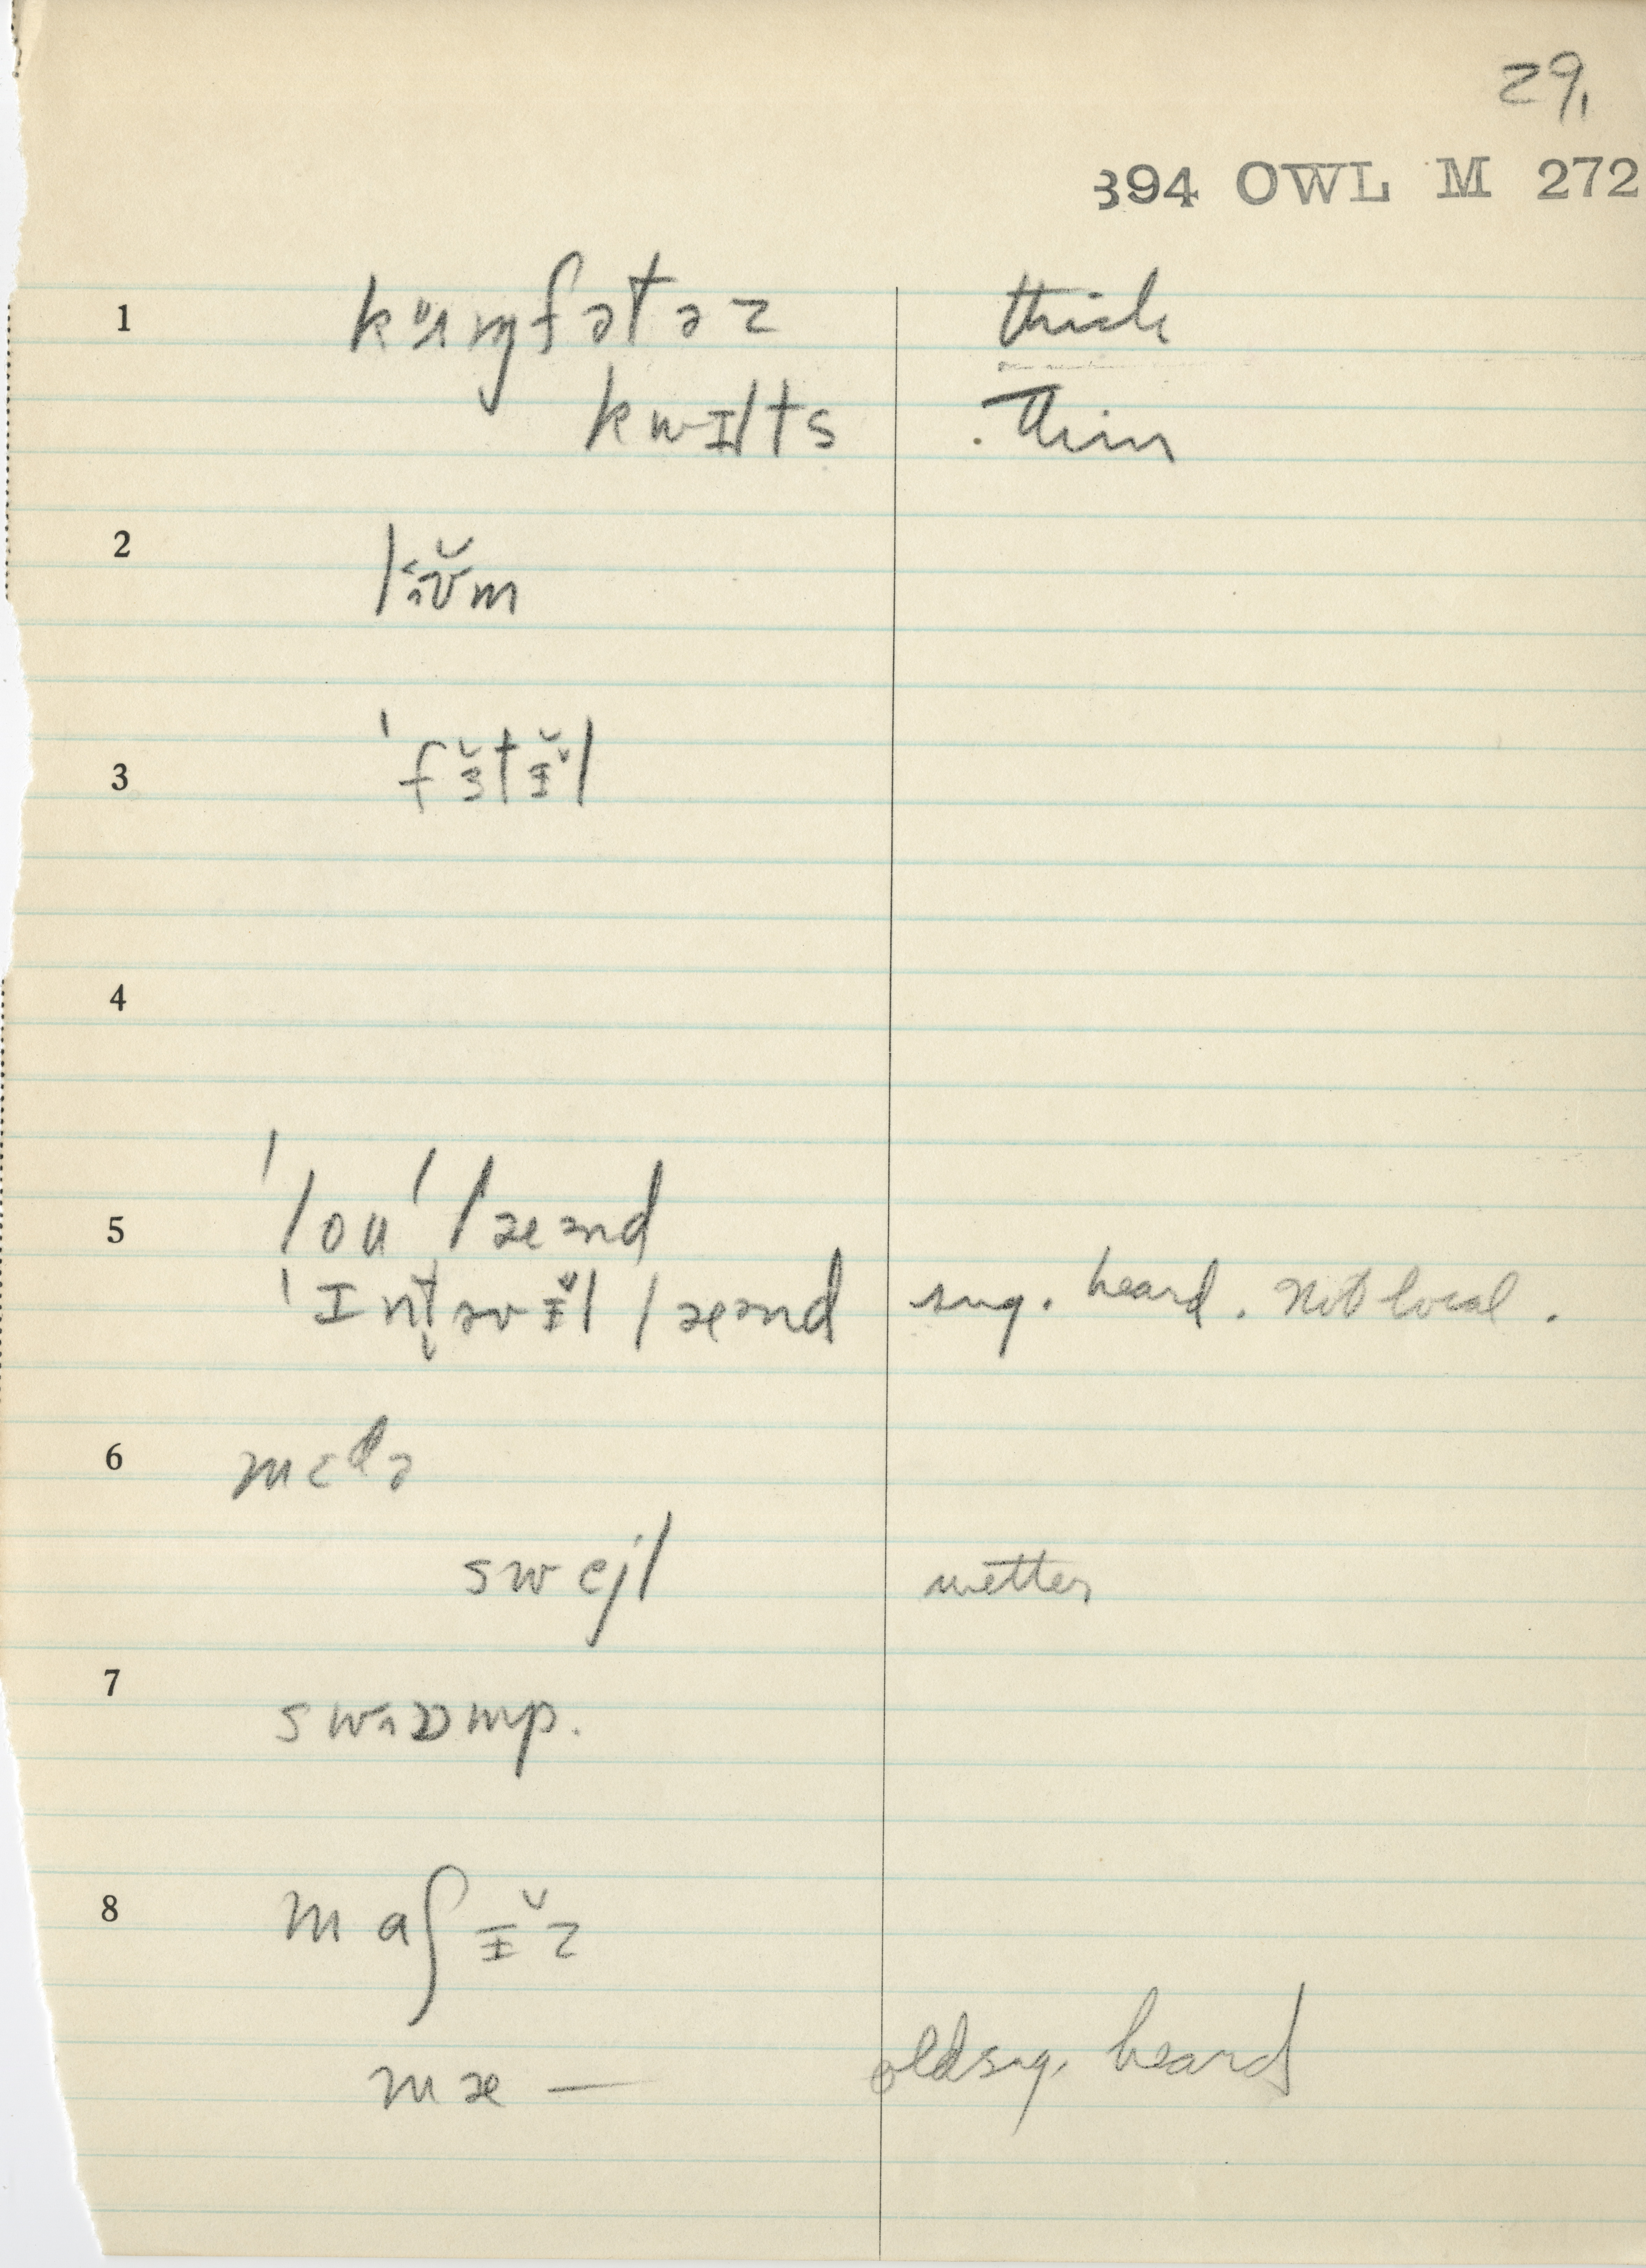 29.
394 OWL M 272
1 kʌɱfətəz thick
kwɪlts thin
2 lŏʊm
3 'fɜ̆tɨ̆l
4
5 'lou'læənd
'ɪntəvɨ̆l læənd sug. heard. not local.
6 mɛdə
swejl wetter
7 swɒmp.
8 maʃɨ̆z
mæ — old sug. heard